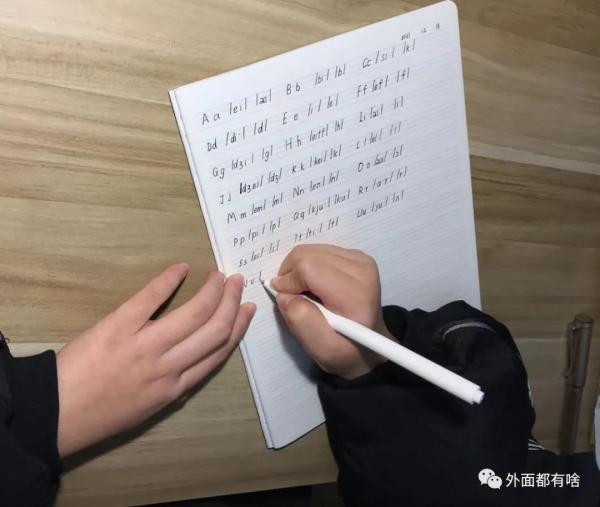 2021 12
Aa /ei/ /æ/ Bb /bi:/ /b/ Cc /si:/ /k/
Dd /di:/ /d/ Ee /i:/ /e/ Ff /ef/ /f/
Gg /dʒi:/ /g/ Hh /eitʃ/ /h/ Ii /ai/ /i/
Jj /dʒei/ /dʒ/ Kk /kei/ /k/ Ll /el/ /l/
Mm /em/ /m/ Nn /en/ /n/ Oo /əu/
Pp /pi:/ /p/ Qq /kju:/ /kw/ Rr /a:r/ /r/
Ss /es/ /s/ Tt /ti:/ /t/ Uu /ju:/
外面都有啥